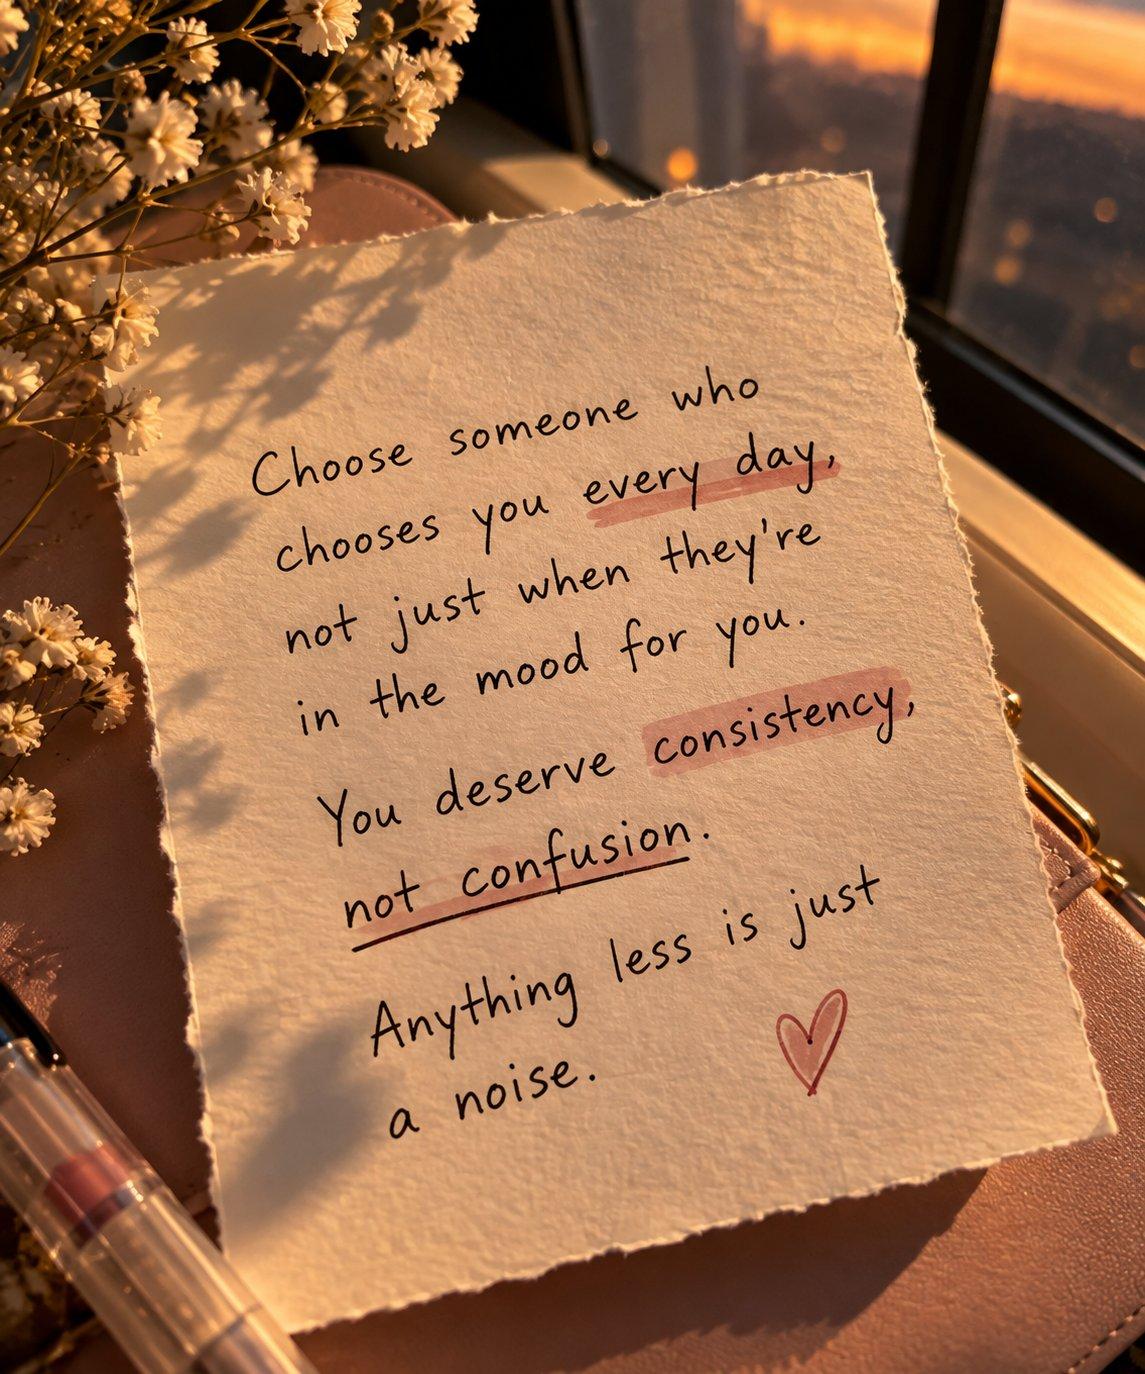 Choose someone who
chooses you every day,
not just when they're
in the mood for you.
You deserve consistency,
not confusion.
Anything less is just
a noise.